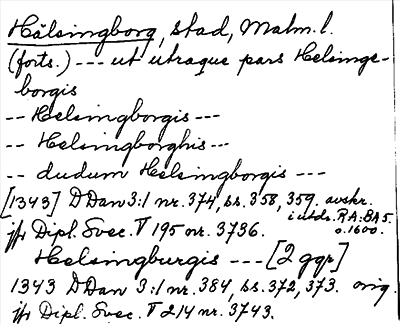 Hälsingborg, stad, Malm. l.
(forts.) --- ut utraque pars Helsinge-
borgis
-- Helsingborgis ---
-- Helsingborghis ---
-- dudum Helsingborgis ---
[1343] DDan 3:1 nr. 374, ss. 358, 359. avskr.
i utds. RA: BA5.
jfr Dipl. Svec. V 195 nr. 3736. o. 1600.
Helsingburgis --- [2 ggr]
1343 DDan 3:1 nr. 384, ss. 372, 373. orig.
jfr Dipl. Svec. V 214 nr. 3743.